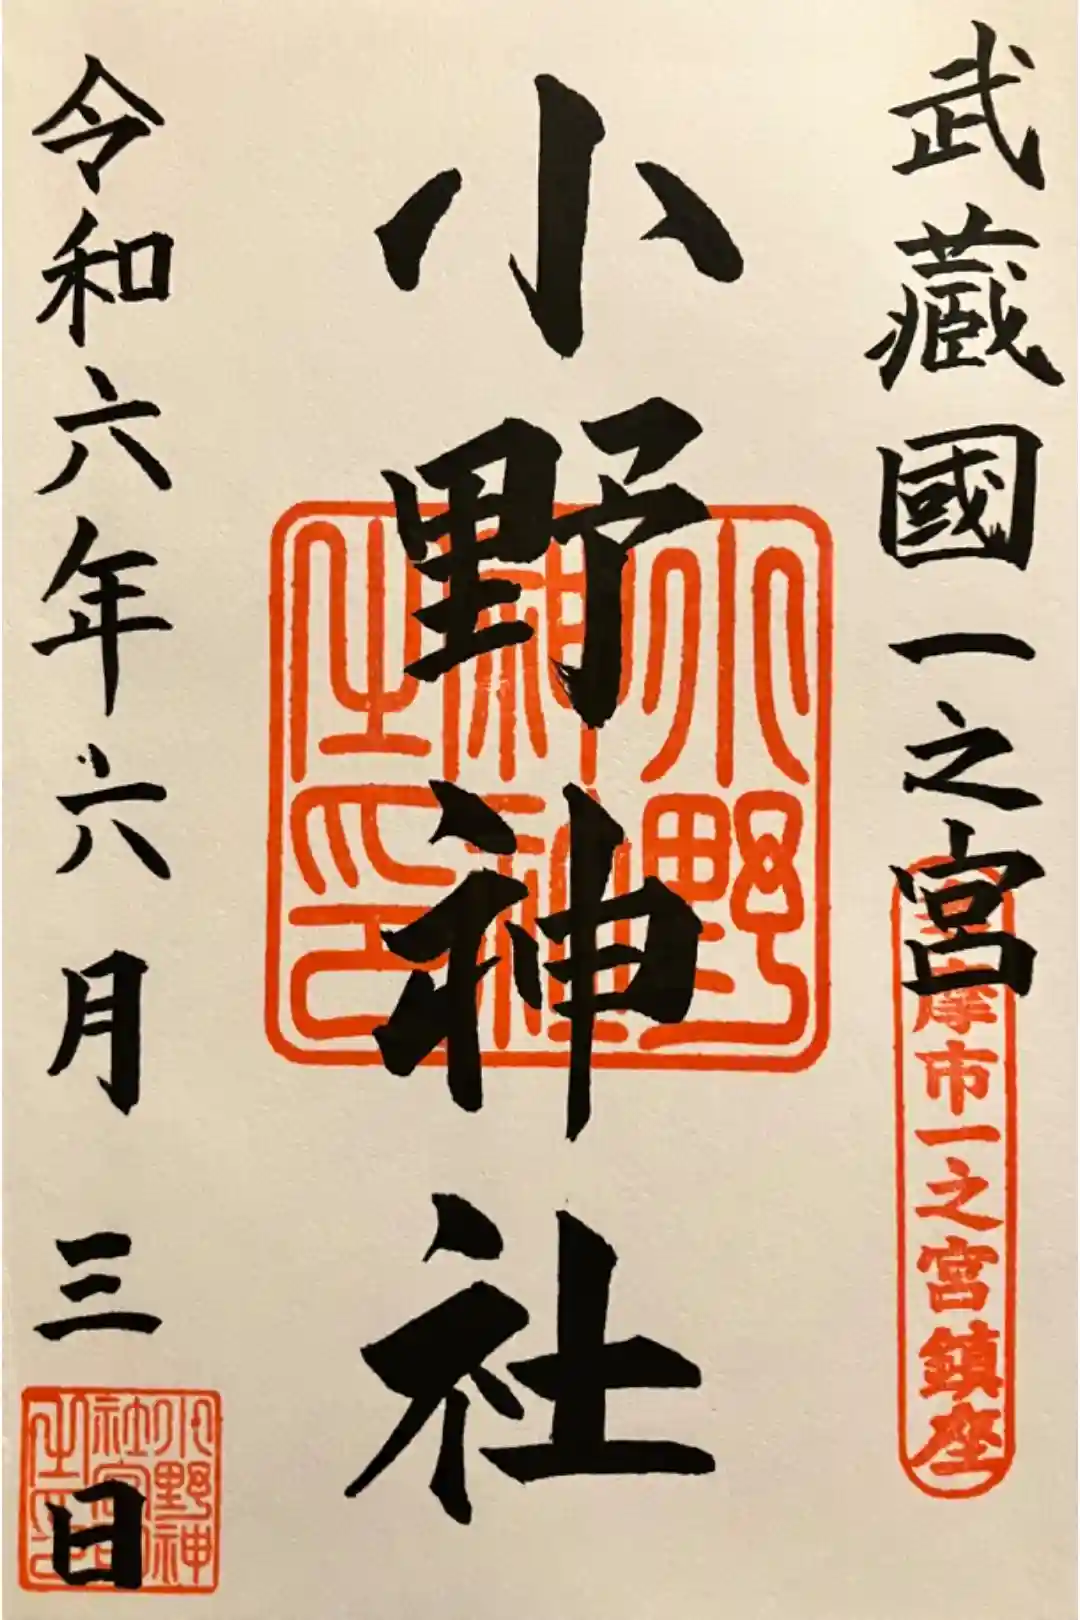 武藏國一之宮
多摩市一之宮鎮座
小野神社
小野神社之印
令和六年六月三日
小野神社宮司之印